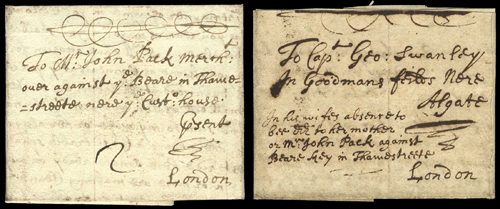 To Mr. John Pack mercht.
over against ye Beare in Thame
=streete nere ye Custo: house
Psent
2
London
To Capt: Geo: Swanley
In Goodmans Nere
Algate
In his wifes absente to
bee did to her mother
or Mr. John Pack against
Beare Key in Thamestreete
London